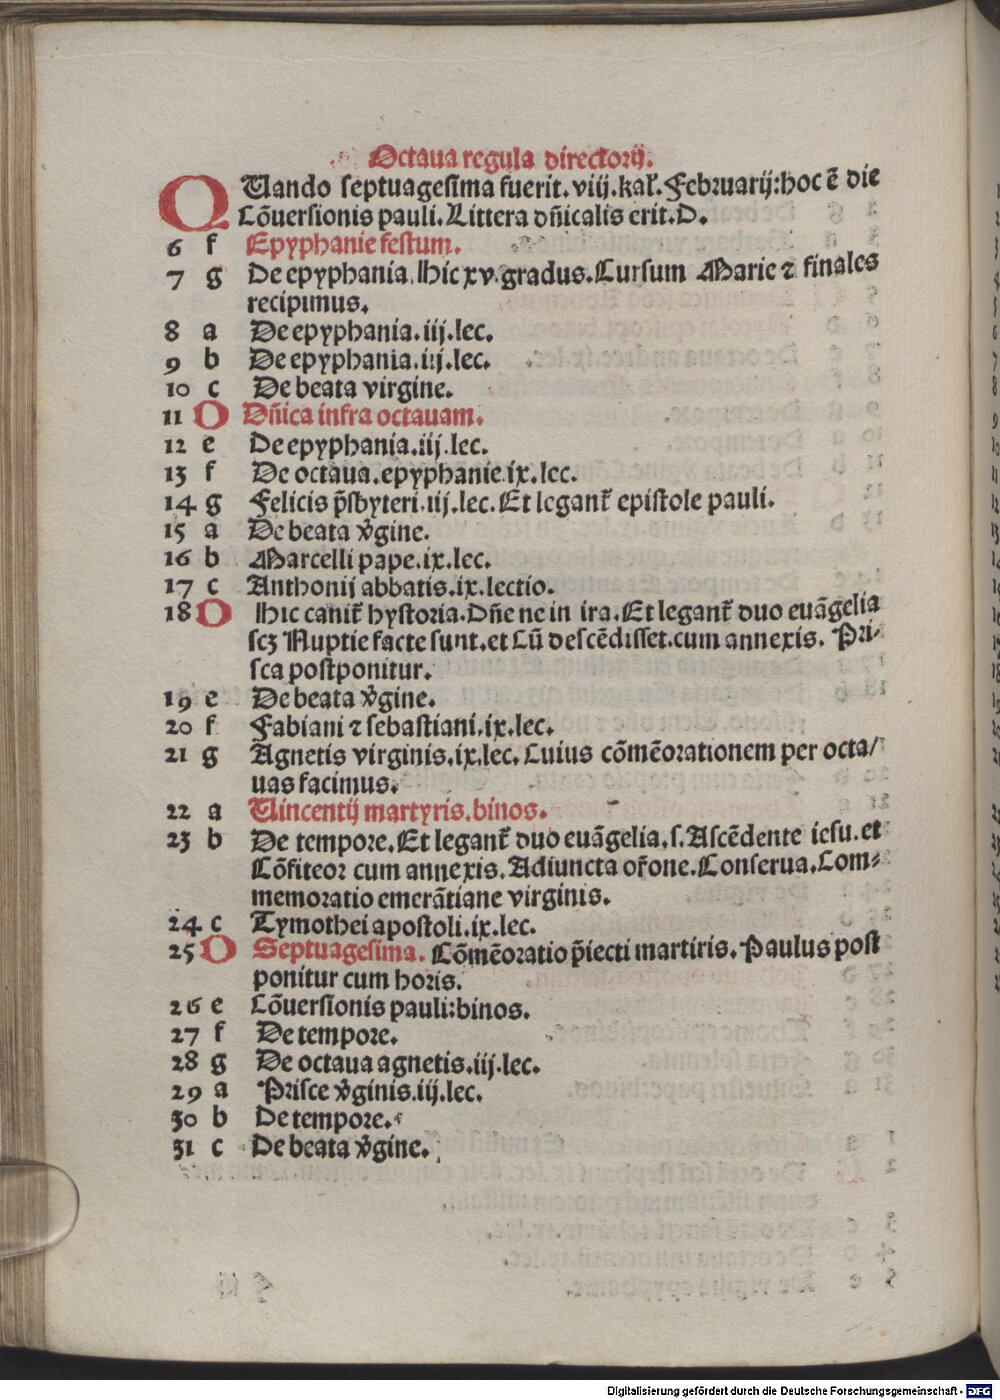 Octaua regula directorij.
QUando septuagesima fuerit. viij. kal̄. Februarij: hoc ē die
Cōuersionis pauli. Littera dn̄icalis erit. D.
6 f Epyphanie festum.
7 g De epyphania. Hic xv. gradus. Cursum Marie ⁊ finales
recipimus.
8 a De epyphania. iij. lec.
9 b De epyphania. iij. lec.
10 c De beata virgine.
11 D Dn̄ica infra octauam.
12 e De epyphania. iij. lec.
13 f De octaua. epyphanie. ix. lec.
14 g Felicis p̄sbyteri. iij. lec. Et legant᷑ epistole pauli.
15 a De beata v̄gine.
16 b Marcelli pape. ix. lec.
17 c Anthonij abbatis. ix. lectio.
18 D Hic canit᷑ hystoria. Dn̄e ne in ira. Et legant᷑ duo euāgelia
scꝫ Nuptie facte sunt. et Cū descēdisset. cum annexis. Pri-
sca postponitur.
19 e De beata v̄gine.
20 f Fabiani ⁊ sebastiani. ix. lec.
21 g Agnetis virginis. ix. lec. Cuius cōmēorationem per octa/
uas facimus.
22 a Uincentij martyris. binos.
23 b De tempore. Et legant᷑ duo euāgelia. s. Ascēdente iesu. et
Cōfiteor cum annexis. Adiuncta or̄one. Conserua. Com-
memoratio emerātiane virginis.
24 c Tymothei apostoli. ix. lec.
25 D Septuagesima. Cōmēoratio p̄iecti martiris. Paulus post
ponitur cum horis.
26 e Cōuersionis pauli: binos.
27 f De tempore.
28 g De octaua agnetis. iij. lec.
29 a Prisce v̄ginis. iij. lec.
30 b De tempore.
31 c De beata v̄gine.
Digitalisierung gefördert durch die Deutsche Forschungsgemeinschaft - DFG